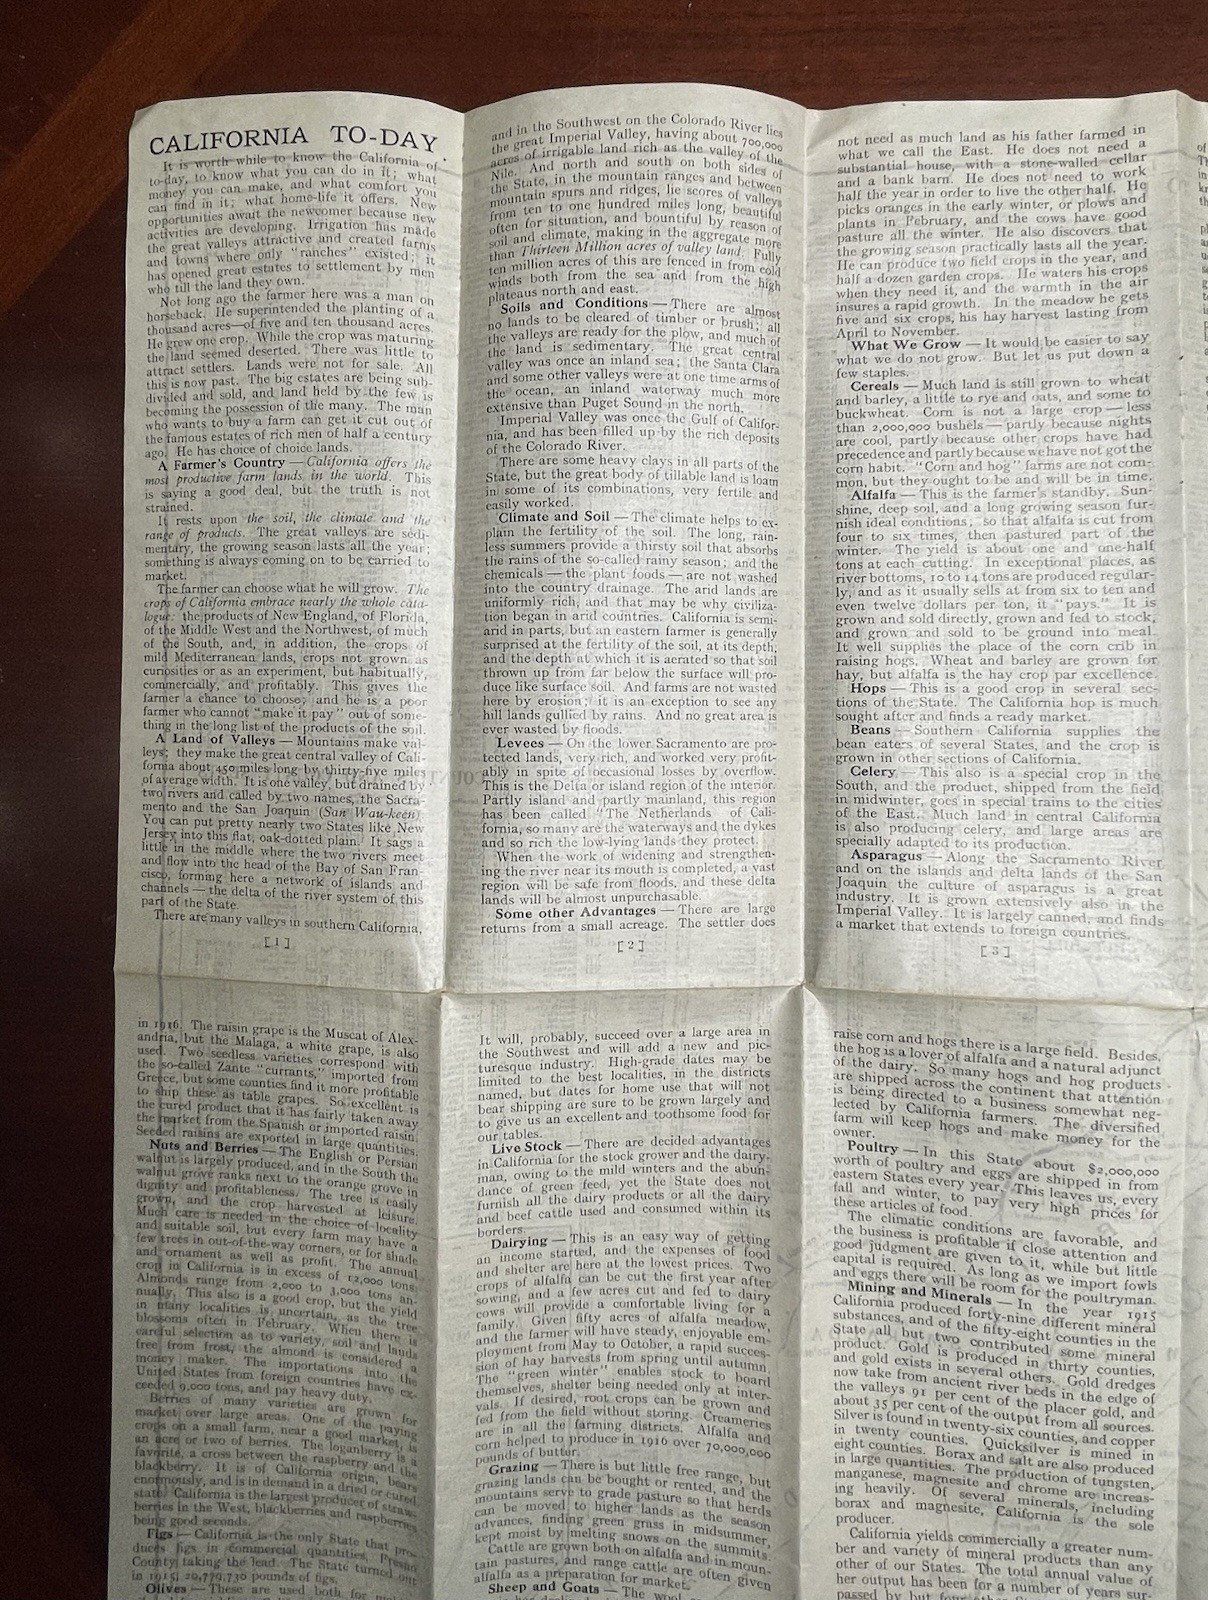 CALIFORNIA TO-DAY
It is worth while to know the California of
to-day, to know what you can do in it; what
money you can make, and what comfort you
can find in it; what home-life it offers. New
opportunities await the newcomer because new
activities are developing. Irrigation has made
the great valleys attractive and created farms
and towns where only "ranches" existed; it
has opened great estates to settlement by men
who till the land they own.
Not long ago the farmer here was a man on
horseback. He superintended the planting of a
thousand acres—of five and ten thousand acres.
He grew one crop. While the crop was maturing
the land seemed deserted. There was little to
attract settlers. Lands were not for sale. All
this is now past. The big estates are being sub-
divided and sold, and land held by the few is
becoming the possession of the many. The man
who wants to buy a farm can get it cut out of
the famous estates of rich men of half a century
ago. He has choice of choice lands.
A Farmer's Country — California offers the
most productive farm lands in the world. This
is saying a good deal, but the truth is not
strained.
It rests upon the soil, the climate and the
range of products. The great valleys are sedi-
mentary, the growing season lasts all the year;
something is always coming on to be carried to
market.
The farmer can choose what he will grow. The
crops of California embrace nearly the whole cata-
logue: the products of New England, of Florida,
of the Middle West and the Northwest, of much
of the South, and, in addition, the crops of
mild Mediterranean lands, crops not grown as
curiosities or as an experiment, but habitually,
commercially, and profitably. This gives the
farmer a chance to choose; and he is a poor
farmer who cannot "make it pay" out of some-
thing in the long list of the products of the soil.
A Land of Valleys — Mountains make val-
leys; they make the great central valley of Cali-
fornia about 450 miles long by thirty-five miles
of average width. It is one valley, but drained by
two rivers and called by two names, the Sacra-
mento and the San Joaquin (San Wau-keen).
You can put pretty nearly two States like New
Jersey into this flat, oak-dotted plain. It sags a
little in the middle where the two rivers meet
and flow into the head of the Bay of San Fran-
cisco, forming here a network of islands and
channels — the delta of the river system of this
part of the State.
There are many valleys in southern California,
[ 1 ]
and in the Southwest on the Colorado River lies
the great Imperial Valley, having about 700,000
acres of irrigable land rich as the valley of the
Nile. And north and south on both sides of
the State, in the mountain ranges and between
mountain spurs and ridges, lie scores of valleys
from ten to one hundred miles long, beautiful
often for situation, and bountiful by reason of
soil and climate, making in the aggregate more
than Thirteen Million acres of valley land. Fully
ten million acres of this are fenced in from cold
winds both from the sea and from the high
plateaus north and east.
Soils and Conditions — There are almost
no lands to be cleared of timber or brush; all
the valleys are ready for the plow, and much of
the land is sedimentary. The great central
valley was once an inland sea; the Santa Clara
and some other valleys were at one time arms of
the ocean, an inland waterway much more
extensive than Puget Sound in the north.
Imperial Valley was once the Gulf of Califor-
nia, and has been filled up by the rich deposits
of the Colorado River.
There are some heavy clays in all parts of the
State, but the great body of tillable land is loam
in some of its combinations, very fertile and
easily worked.
Climate and Soil — The climate helps to ex-
plain the fertility of the soil. The long, rain-
less summers provide a thirsty soil that absorbs
the rains of the so-called rainy season; and the
chemicals — the plant foods — are not washed
into the country drainage. The arid lands are
uniformly rich, and that may be why civiliza-
tion began in arid countries. California is semi-
arid in parts, but an eastern farmer is generally
surprised at the fertility of the soil, at its depth,
and the depth at which it is aerated so that soil
thrown up from far below the surface will pro-
duce like surface soil. And farms are not wasted
here by erosion; it is an exception to see any
hill lands gullied by rains. And no great area is
ever wasted by floods.
Levees — On the lower Sacramento are pro-
tected lands, very rich, and worked very profit-
ably in spite of occasional losses by overflow.
This is the Delta or island region of the interior.
Partly island and partly mainland, this region
has been called "The Netherlands of Cali-
fornia, so many are the waterways and the dykes
and so rich the low-lying lands they protect.
When the work of widening and strengthen-
ing the river near its mouth is completed, a vast
region will be safe from floods, and these delta
lands will be almost unpurchasable.
Some other Advantages — There are large
returns from a small acreage. The settler does
[ 2 ]
not need as much land as his father farmed in
what we call the East. He does not need a
substantial house, with a stone-walled cellar
and a bank barn. He does not need to work
half the year in order to live the other half. He
picks oranges in the early winter, or plows and
plants in February, and the cows have good
pasture all the winter. He also discovers that
the growing season practically lasts all the year.
He can produce two field crops in the year, and
half a dozen garden crops. He waters his crops
when they need it, and the warmth in the air
insures a rapid growth. In the meadow he gets
five and six crops, his hay harvest lasting from
April to November.
What We Grow — It would be easier to say
what we do not grow. But let us put down a
few staples.
Cereals — Much land is still grown to wheat
and barley, a little to rye and oats, and some to
buckwheat. Corn is not a large crop — less
than 2,000,000 bushels — partly because nights
are cool, partly because other crops have had
precedence and partly because we have not got the
corn habit. "Corn and hog" farms are not com-
mon, but they ought to be and will be in time.
Alfalfa — This is the farmer's standby. Sun-
shine, deep soil, and a long growing season fur-
nish ideal conditions, so that alfalfa is cut from
four to six times, then pastured part of the
winter. The yield is about one and one-half
tons at each cutting. In exceptional places, as
river bottoms, 10 to 14 tons are produced regular-
ly, and as it usually sells at from six to ten and
even twelve dollars per ton, it "pays." It is
grown and sold directly, grown and fed to stock,
and grown and sold to be ground into meal.
It well supplies the place of the corn crib in
raising hogs. Wheat and barley are grown for
hay, but alfalfa is the hay crop par excellence.
Hops — This is a good crop in several sec-
tions of the State. The California hop is much
sought after and finds a ready market.
Beans — Southern California supplies the
bean eaters of several States, and the crop is
grown in other sections of California.
Celery — This also is a special crop in the
South, and the product, shipped from the field
in midwinter, goes in special trains to the cities
of the East. Much land in central California
is also producing celery, and large areas are
specially adapted to its production.
Asparagus — Along the Sacramento River
and on the islands and delta lands of the San
Joaquin the culture of asparagus is a great
industry. It is grown extensively also in the
Imperial Valley. It is largely canned, and finds
a market that extends to foreign countries.
[ 3 ]
in 1916. The raisin grape is the Muscat of Alex-
andria, but the Malaga, a white grape, is also
used. Two seedless varieties correspond with
the so-called Zante "currants," imported from
Greece, but some counties find it more profitable
to ship these as table grapes. So excellent is
the cured product that it has fairly taken away
the market from the Spanish or imported raisin.
Seeded raisins are exported in large quantities.
Nuts and Berries — The English or Persian
walnut is largely produced, and in the South the
walnut grove ranks next to the orange grove in
dignity and profitableness. The tree is easily
grown, and the crop harvested at leisure.
Much care is needed in the choice of locality
and suitable soil, but every farm may have a
few trees in out-of-the-way corners, or for shade
and ornament as well as profit. The annual
crop in California is in excess of 12,000 tons.
Almonds range from 2,000 to 3,000 tons an-
nually. This also is a good crop, but the yield
in many localities is uncertain, as the tree
blossoms often in February. When there is
careful selection as to variety, soil and lands
free from frost, the almond is considered a
money maker. The importations into the
United States from foreign countries have ex-
ceeded 9,000 tons, and pay heavy duty.
Berries of many varieties are grown for
market over large areas. One of the paying
crops on a small farm, near a good market, is
an acre or two of berries. The loganberry is a
favorite, a cross between the raspberry and the
blackberry. It is of California origin, bears
enormously, and is in demand in a dried or cured
state. California is the largest producer of straw-
berries in the West, blackberries and raspberries
being good seconds.
Figs — California is the only State that pro-
duces figs in commercial quantities, Fresno
County taking the lead. The State turned out
in 1915, 20,779,730 pounds of figs.
Olives — These are used both for
It will, probably, succeed over a large area in
the Southwest and will add a new and pic-
turesque industry. High-grade dates may be
limited to the best localities, in the districts
named, but dates for home use that will not
bear shipping are sure to be grown largely and
to give us an excellent and toothsome food for
our tables.
Live Stock — There are decided advantages
in California for the stock grower and the dairy-
man, owing to the mild winters and the abun-
dance of green feed, yet the State does not
furnish all the dairy products or all the dairy
and beef cattle used and consumed within its
borders.
Dairying — This is an easy way of getting
an income started, and the expenses of food
and shelter are here at the lowest prices. Two
crops of alfalfa can be cut the first year after
sowing, and a few acres cut and fed to dairy
cows will provide a comfortable living for a
family. Given fifty acres of alfalfa meadow,
and the farmer will have steady, enjoyable em-
ployment from May to October, a rapid succes-
sion of hay harvests from spring until autumn.
The "green winter" enables stock to board
themselves, shelter being needed only at inter-
vals. If desired, root crops can be grown and
fed from the field without storing. Creameries
are in all the farming districts. Alfalfa and
corn helped to produce in 1916 over 70,000,000
pounds of butter.
Grazing — There is but little free range, but
grazing lands can be bought or rented, and the
mountains serve to grade pasture so that herds
can be moved to higher lands as the season
advances, finding green grass in midsummer,
kept moist by melting snows on the summits.
Cattle are grown both on alfalfa and in moun-
tain pastures, and range cattle are often given
alfalfa as a preparation for market.
Sheep and Goats — The wool
raise corn and hogs there is a large field. Besides,
the hog is a lover of alfalfa and a natural adjunct
of the dairy. So many hogs and hog products
are shipped across the continent that attention
is being directed to a business somewhat neg-
lected by California farmers. The diversified
farm will keep hogs and make money for the
owner.
Poultry — In this State about $2,000,000
worth of poultry and eggs are shipped in from
eastern States every year. This leaves us, every
fall and winter, to pay very high prices for
these articles of food.
The climatic conditions are favorable, and
the business is profitable if close attention and
good judgment are given to it, while but little
capital is required. As long as we import fowls
and eggs there will be room for the poultryman.
Mining and Minerals — In the year 1915
California produced forty-nine different mineral
substances, and of the fifty-eight counties in the
State all but two contributed some mineral
product. Gold is produced in thirty counties,
and gold exists in several others. Gold dredges
now take from ancient river beds in the edge of
the valleys 91 per cent of the placer gold, and
about 35 per cent of the output from all sources.
Silver is found in twenty-six counties, and copper
in twenty counties. Quicksilver is mined in
eight counties. Borax and salt are also produced
in large quantities. The production of tungsten,
manganese, magnesite and chrome are increas-
ing heavily. Of several minerals, including
borax and magnesite, California is the sole
producer.
California yields commercially a greater num-
ber and variety of mineral products than any
other of our States. The total annual value of
her output has been for a number of years sur-
passed by but four other States